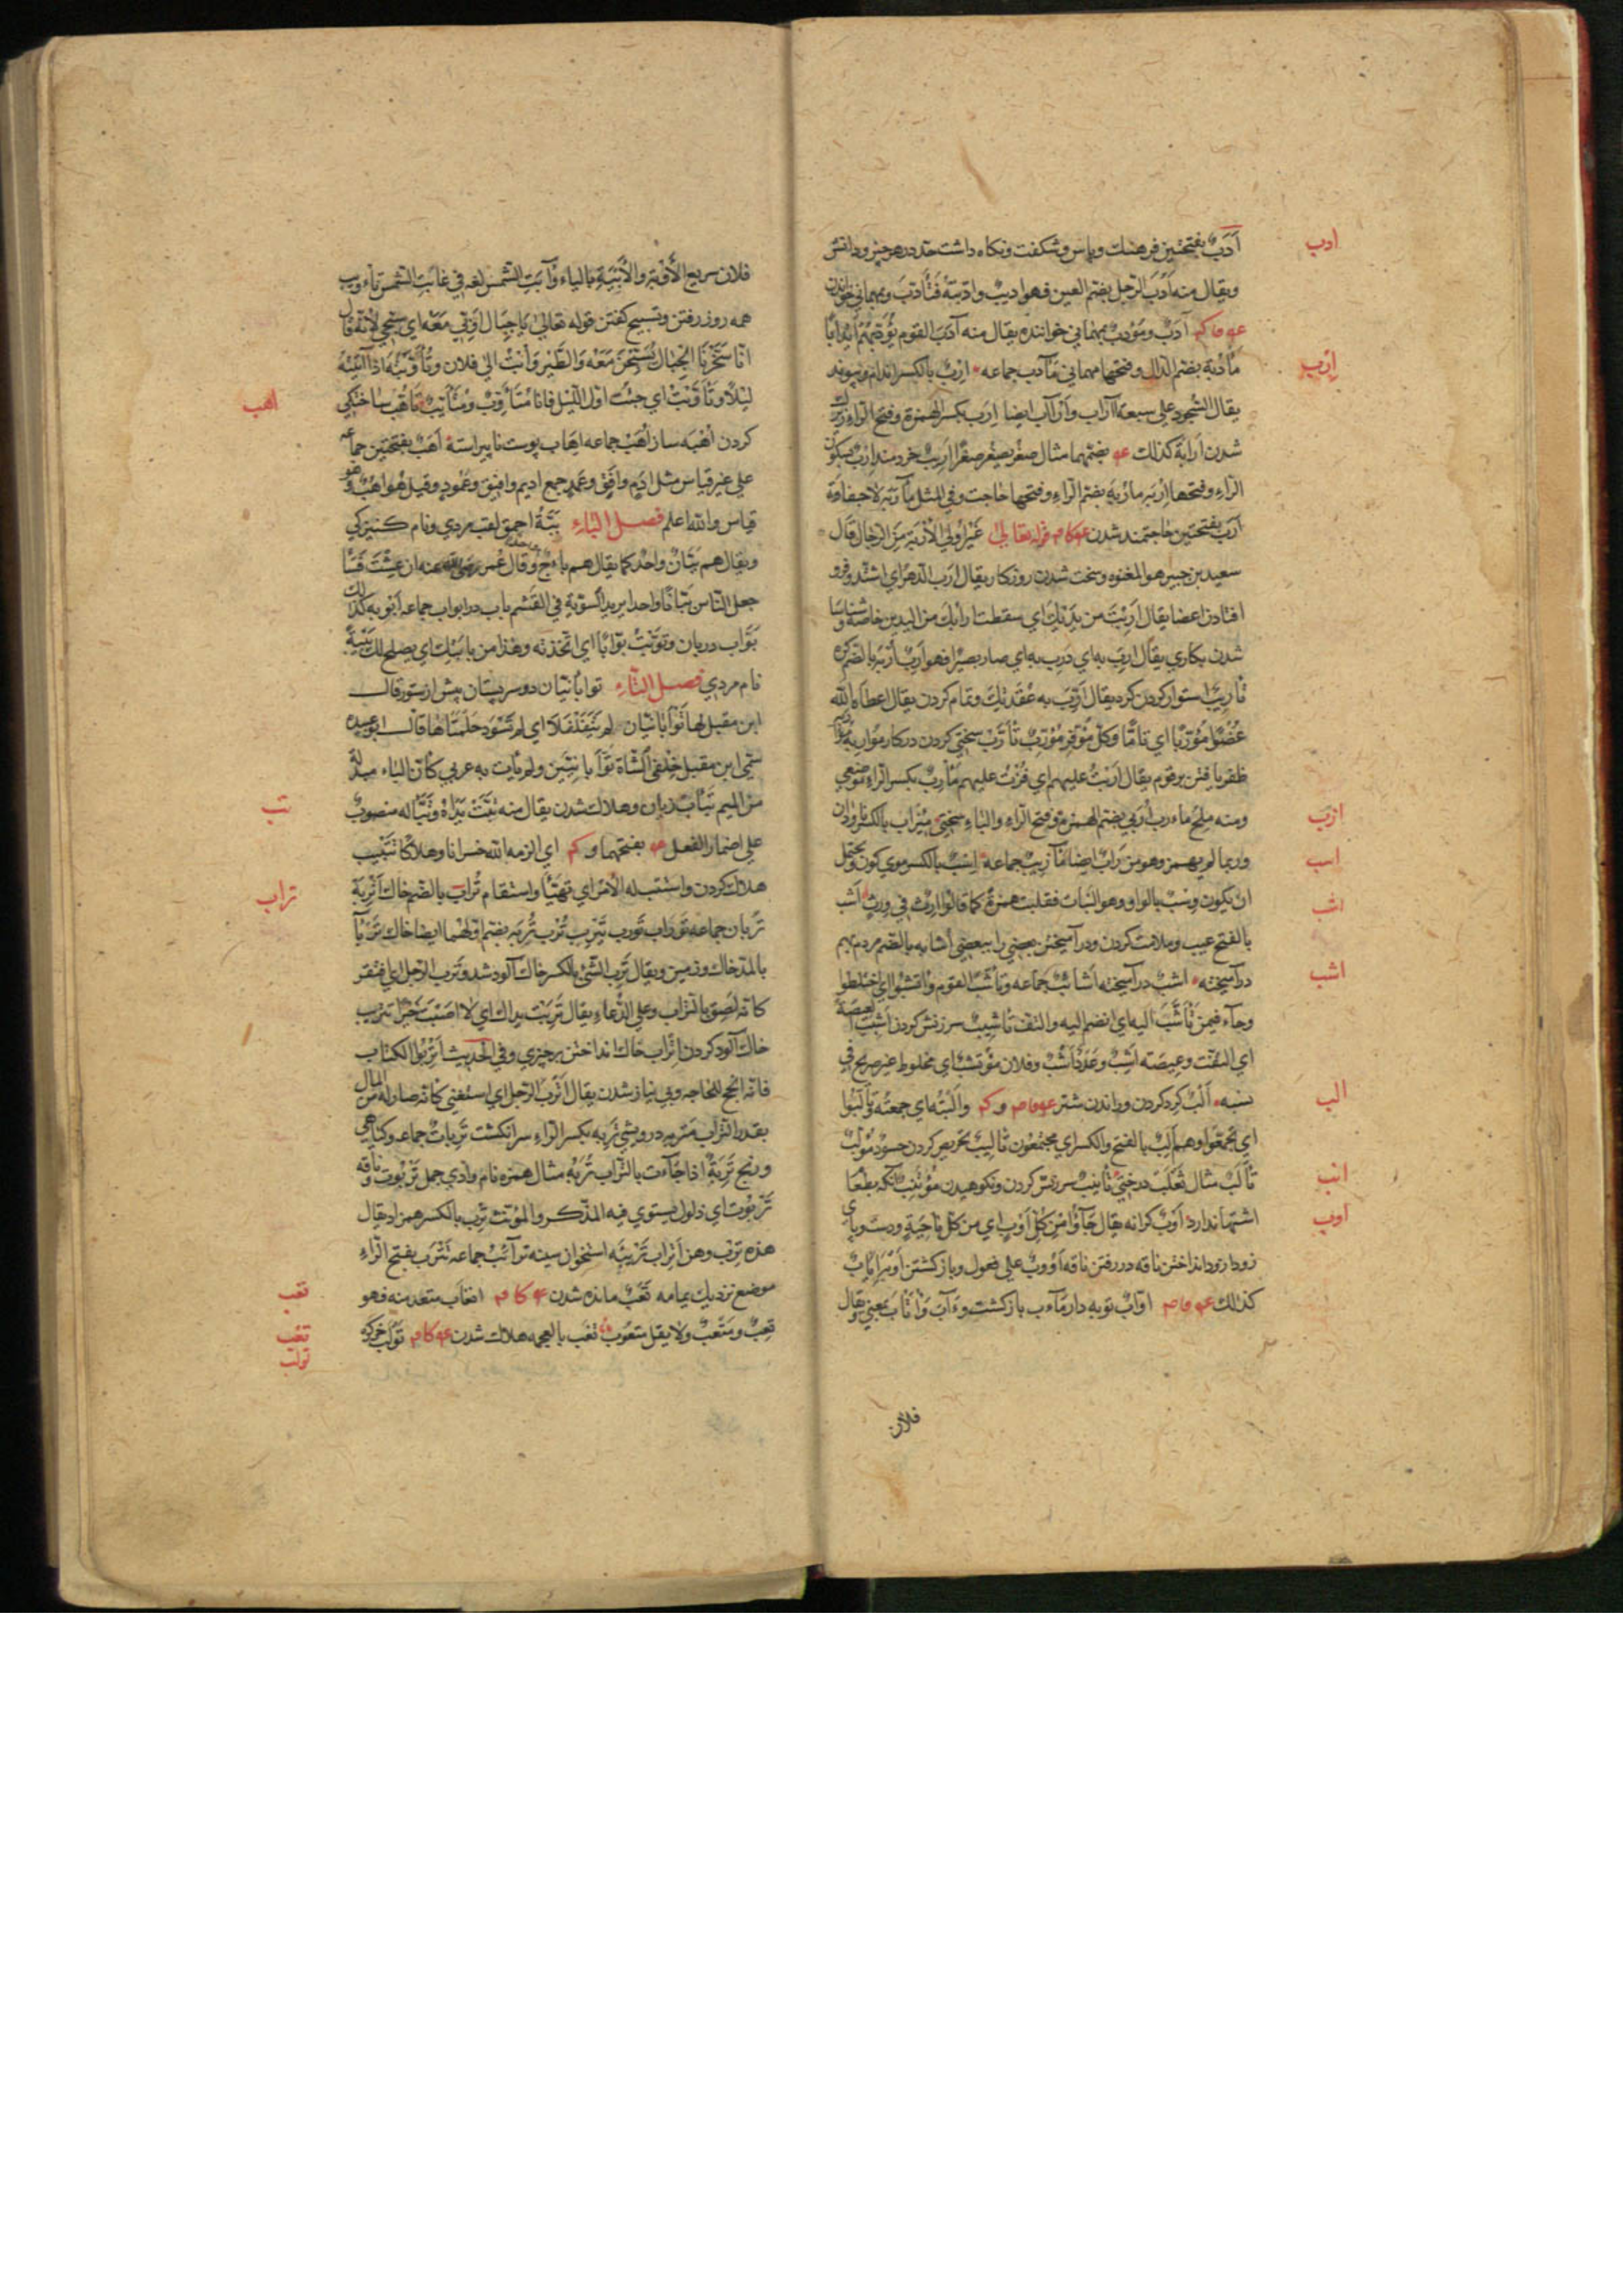 ادب
أَدَبٌ بفتحتين فرهنك وپاس وشكفت ونكاه داشت حد در هر چيز ودانش
ويقال منه أَدُبَ الرجل بضم العين فهو اديبٌ وادّبته فتأدّبَ ومهماني خواندن
آدبٌ ومؤدبٌ بمهماني خواننده يقال منه آدَبَ القوم يؤدبهم ايدابًا
ارب
مأدبة بضم الدال وفتحها مهماني مآدب جماعه ارب بالكسر اندام
يقال السجود على سبعة آراب وأرآب ايضا اِرَب بكسر الهمزة وفتح الراء
شدن ارابة كذلك بضمهما مثال صغر يصغر صغرا اريب خردمند ارب بسكون
الراء وفتحها اربه مأربه بضم الراء وفتحها حاجت وفي المثل مأربة لا حفاوة
أرب بفتحتين حاجتمند شدن قوله تعالى غير اولي الاربة من الرجال قال
سعيد بن جبير هو المعتوه وسخت شدن روزكار يقال ارب الدهر اي اشتد وفرو
افتادن اعضا يقال اربت من يديك اي سقطت آرابك من اليدين خاصة
شدن بكاري يقال ارب به اي درب به اي صار بصيرا فهو ارب اربه بالضم كره
تأريب استوار كردن كره يقال ارّب به عقدتك وتمام كردن يقال اعطاه الله
عضوا مؤرّبا اي تامًّا وكل موفر مؤرب تأرّب سختي كردن در كار
ظفر يافتن بر قوم يقال اربت عليهم اي فزت عليهم مأرب بكسر الراء موضعي
ازب
ومنه ملح مأرب اُرَبي بضم الهمزة وفتح الراء والباء سختي ميزاب بالكسر ناودان
اسب
وربما لم يهمز وهو من زاب ايضا مآزيب جماعة اسب بالكسر موي
اشب
ان يكون وسب بالواو وهو النبات فقلبت همزة كما قالوا ارث في ورث اشب
بالفتح عيب وملامت كردن ودر آميختن بعضي را ببعضي اشابه بالضم مردم بهم
اشب
در آميخته اشب در آميخته اشائب جماعه وتأشب القوم وائتشبوا اي اختلطوا
وجاء فيمن تأشب اليه اي انضم اليه والتف تأشيب سرزنش كردن اشبت الغيضة
اي التفت وعيصه اشب وعدد اشب وفلان مؤتشب اي مخلوط غير صريح في
الب
نسبه ألب كرد كردن وراندن شتر والبته اي جمعته وتألبوا
اي تجمعوا وهم الب بالفتح والكسر اي مجتمعون تأليب تحريض كردن حسود مؤلب
انب
تألب مثال ثعلب درختي تأنيب سرزنش كردن ونكوهيدن مؤتنب آنكه بطعام
اوب
اشتها ندارد اوب كرانه يقال جاؤا من كل اوب اي من كل ناحية ودست وپاي
زود زود انداختن ناقه در رفتن ناقه اووب على فعول وباز كشتن اوبه اياب
كذلك اوّاب توبه دار مآب باز كشت وآب
فلان
فلان سريع الأوبة والأيبة بالياء وآبت الشمس لغة في غابت الشمس تأويب
همه روز رفتن وتسبيح كفتن قوله تعالى يا جبال اوبي معه اي سبحي لانه قال
انا سخرنا الجبال يسبحن معه والطير وأبت الى فلان وتأوبته اذا آتيته
اهب
ليلا وتأوبت اي جئت اول الليل فانا متأوب ومتأيب تأهب ساختكي
كردن اهبه ساز اهب جماعه اهاب پوست ناپيراسته اهب بفتحتين جماعه
على غير قياس مثل ادم وافق وعمد جمع اديم وافيق وعمود وقيل اهب وهو
قياس والله اعلم فصل الباء ببّة احمق لقب مردي ونام كنيزكي
ويقال هم ببّان واحد كما يقال هم بأج واحد وقال عمر رضي الله عنه ان عشت
جعل الناس ببانا واحدا يريد التسوية في القسم باب در ابواب جماعه ابوبه كذلك
بوّاب دربان وتبوبت بوّابا اي اتخذته وهذا من بابتك اي يصلح لك بيبة
نام مردي فصل التاء توأبانيان دو سر پستان پيش از ستور قال
ابن مقبل لها توأبانيان لم يتفلفلا اي لم تسود حلمتاها قال ابو عبيده
سمى ابن مقبل خلفي الشاة توأبانيين ولم يأت به عربي كأن الباء مبدلة
تب
من الميم تباب زيان وهلاك شدن يقال منه تبت يداه وتبّا له منصوب
على اضمار الفعل بفتحهما اي الزمه الله خسرانا وهلاكا تتبيب
تراب
هلاك كردن واستتب له الامر اي تهيّأ واستقام تراب بالضم خاك اتربة
تربان جماعه توراب تورب تيرب ترب تربه بضم اولهما ايضا خاك تربآ
بالمد خاك وزمين ويقال ترب الشئ بالكسر خاك آلود شد وترب الرجل اي افتقر
كانه لصق بالتراب وعلى الدعاء يقال تربت يداك اي لا اصبت خيرا تتريب
خاك آلود كردن اتراب خاك انداختن بر چيزي وفي الحديث اتربوا الكتاب
فانه انجح للحاجه وبي نياز شدن يقال اترب الرجل اي استغنى كانه صار له من المال
بقدر التراب متربه درويشي تربه بكسر الراء سر انكشت تربات جماعه وكياهي
وريح تربة اذا جاءت بالتراب تربه مثال همزه نام وادي جمل تربوت وناقة
تربوت اي ذلول يستوي فيه المذكر والمؤنث ترب بالكسر همزاد يقال
هذه ترب وهن اتراب تريبه استخوان سينه ترائب جماعه يترب بفتح الراء
تعب
موضع نزديك يمامه تعب مانده شدن اتعاب متعد منه فهو
تغب
تولب
تعب ومتعب ولا يقل متعوب تغب بالمعجمه هلاك شدن تولب خركره